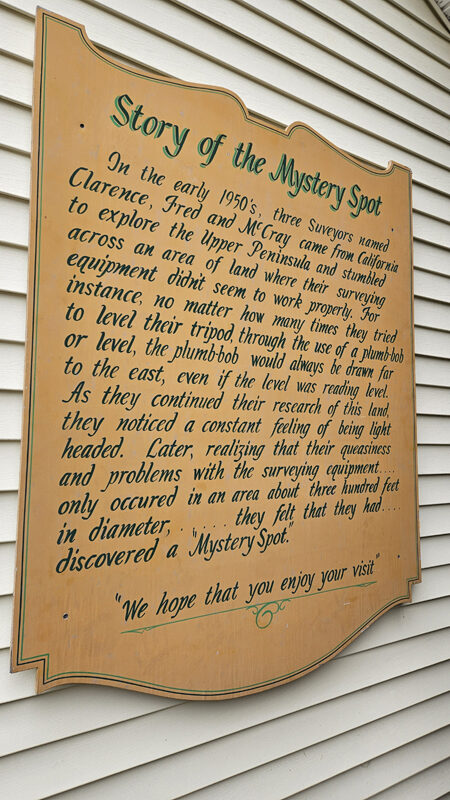 Story of the Mystery Spot
In the early 1950's, three Suveyors named
Clarence, Fred and McCray came from California
to explore the Upper Peninsula and stumbled
across an area of land where their surveying
equipment didn't seem to work properly. For
instance, no matter how many times they tried
to level their tripod, through the use of a plumb-bob
or level, the plumb-bob would always be drawn far
to the east, even if the level was reading level.
As they continued their research of this land,
they noticed a constant feeling of being light
headed. Later, realizing that their queasiness
and problems with the surveying equipment....
only occured in an area about three hundred feet
in diameter, . . . . . . they felt that they had....
discovered a "Mystery Spot."
"We hope that you enjoy your visit"